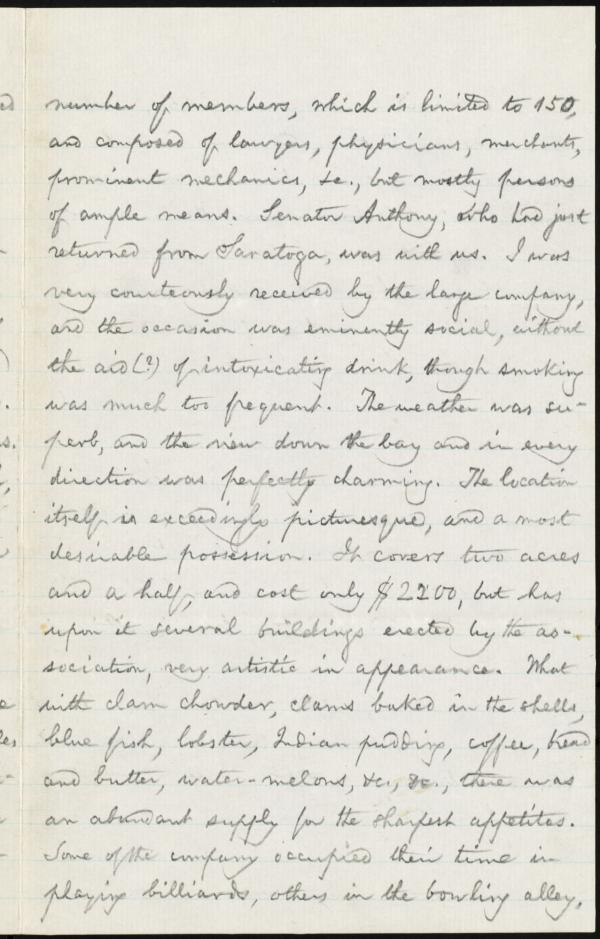 number of members, which is limited to 150,
and composed of lawyers, physicians, merchants,
prominent mechanics, &c., but mostly persons
of ample means. Senator Anthony, who had just
returned from Saratoga, was with us. I was
very courteously received by the large company,
and the occasion was eminently social, without
the aid (?) of intoxicating drink, though smoking
was much too frequent. The weather was su-
perb, and the view down the bay and in every
direction was perfectly charming. The location
itself is exceedingly picturesque, and a most
desirable possession. It covers two acres
and a half, and cost only $2200, but has
upon it several buildings erected by the as-
sociation, very artistic in appearance. What
with clam chowder, clams baked in the shells,
blue fish, lobster, Indian pudding, coffee, bread
and butter, water-melons, &c., &c., there was
an abundant supply for the sharpest appetites.
Some of the company occupied their time in
playing billiards, others in the bowling alley,